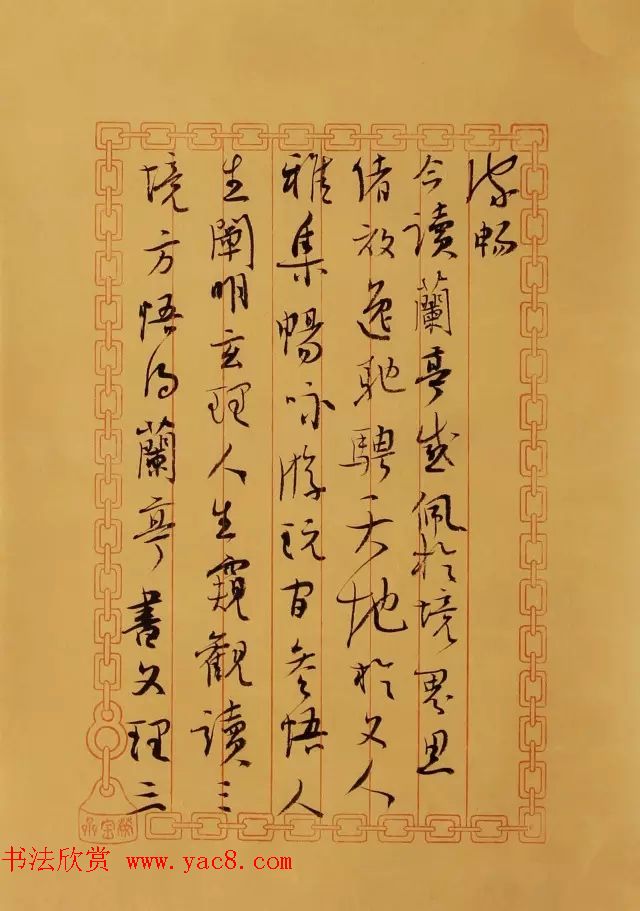 畅
今读蘭亭感佩於境界思
绪放逸驰骋天地於文人
雅集暢咏游玩间参悟人
生闡明玄理人生窺觀读三
境方悟得蘭亭書文理三
书法欣赏 www.yac8.com